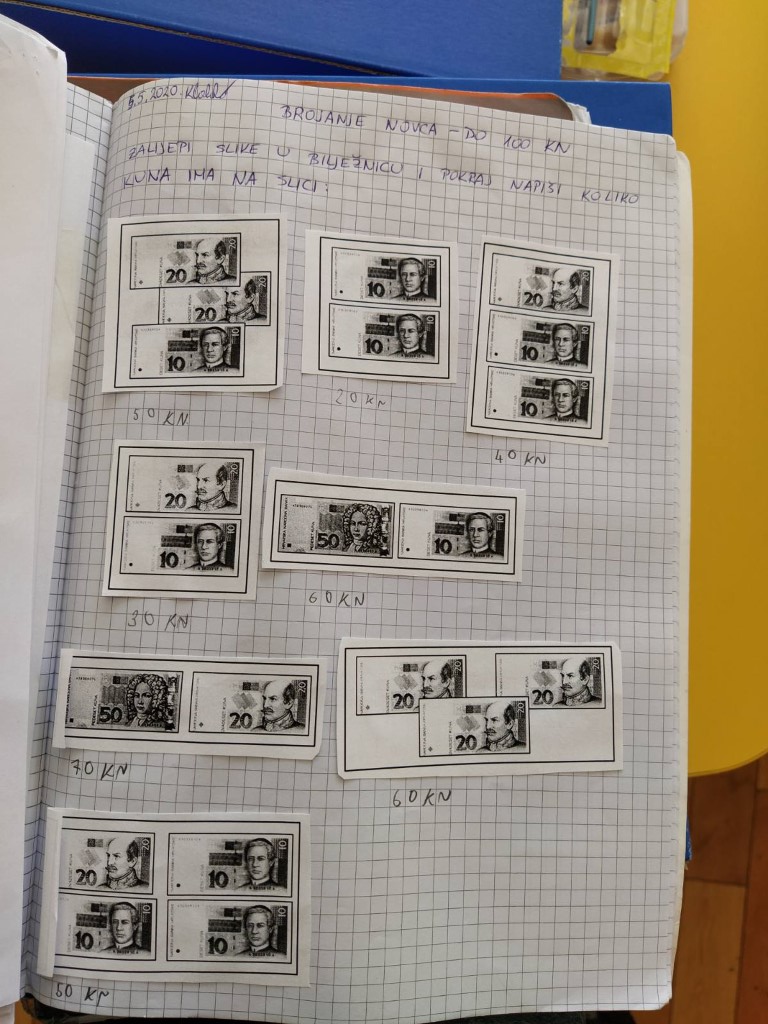 5.5.2020.
BROJANJE NOVCA - DO 100 KN
ZALIJEPI SLIKE U BILJEŽNICU I POKRAJ NAPIŠI KOLIKO
KUNA IMA NA SLICI:
20 20
20 20
10 10
50 KN
10 10
10 10
20 KN
20 20
10 10
10 10
40 KN
20 20
10 10
30 KN
50
10 10
60 KN
50
20 20
70 KN
20 20
20 20
20 20
60 KN
20 20
10 10
10 10
10 10
50 KN